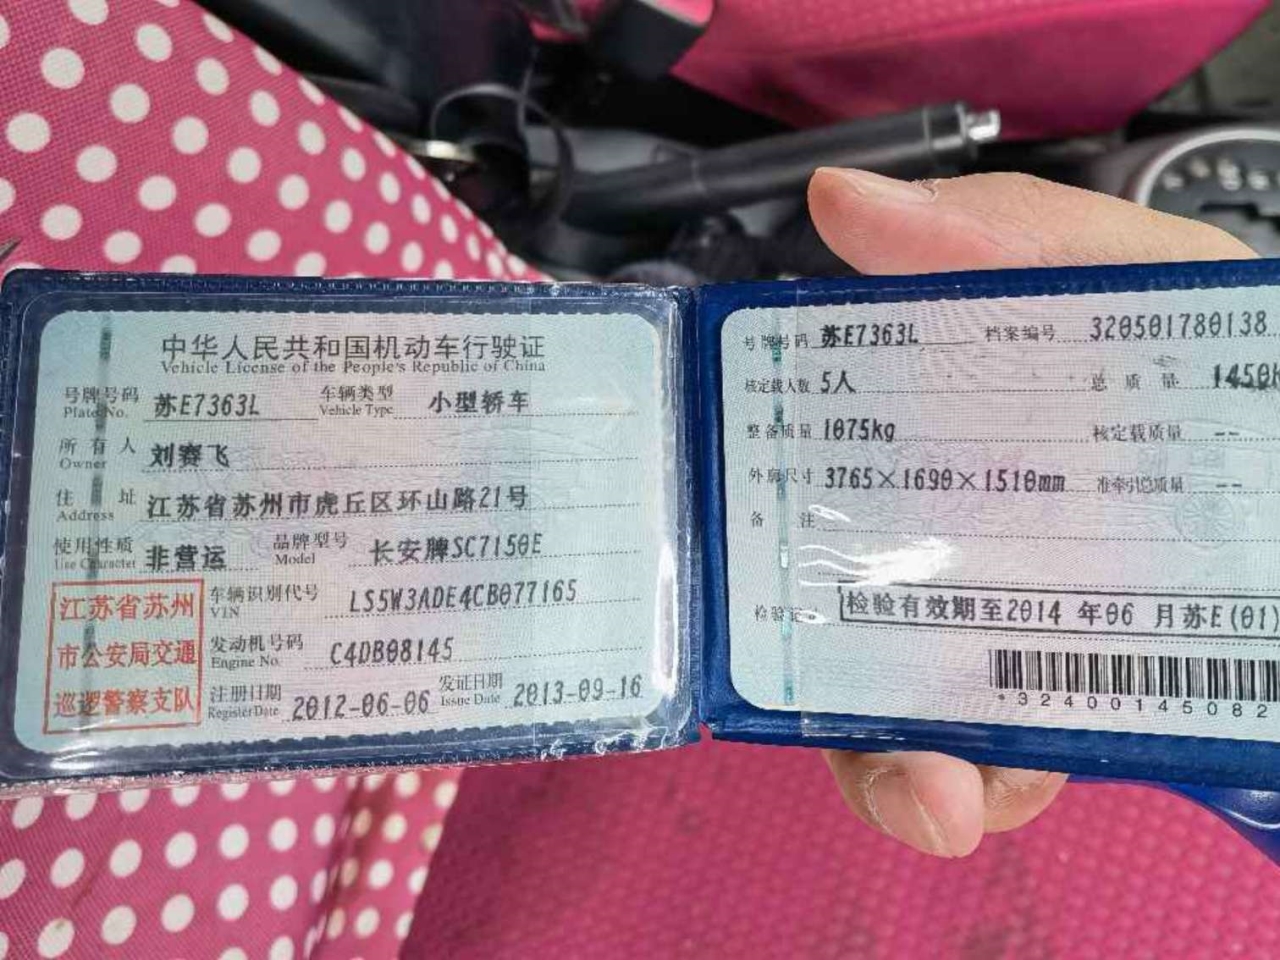 中华人民共和国机动车行驶证
Vehicle License of the People's Republic of China
号牌号码 苏E7363L 车辆类型 小型轿车
Plate No. Vehicle Type
所有人 刘赛飞
Owner
住址 江苏省苏州市虎丘区环山路21号
Address
使用性质 非营运 品牌型号 长安牌SC7150E
Use Character Model
江苏省苏州
市公安局交通
巡逻警察支队
车辆识别代号 LS5W3ADE4CB077165
VIN
发动机号码 C4DB08145
Engine No.
注册日期 2012-06-06 发证日期 2013-09-16
Register Date Issue Date
号牌号码 苏E7363L 档案编号 320501780138
核定载人数 5人 总质量 1450k
整备质量 1075kg 核定载质量 --
外廓尺寸 3765×1690×1510mm 准牵引总质量 --
备注
检验记录 检验有效期至2014 年06 月苏E(01)
*32400145082